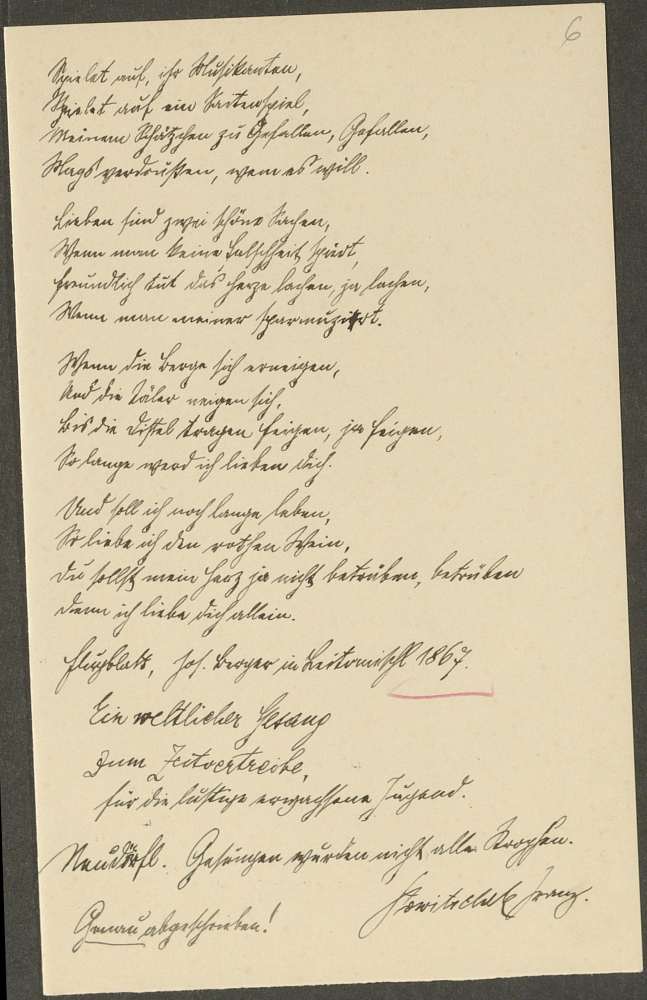 6
Spielet auf, ihr Musikanten,
Spielet auf ein Saitenspiel,
Meinem Schätzchen zu Gefallen, Gefallen,
Mags verdrußen, wem es will.
Lieben sind zwei schöne Sachen,
Wenn man keine Falschheit spürt,
Freundlich tut das Herze lachen, ja lachen,
Wenn man meiner
Wenn die Berge sich erneigen,
Und die Täler neigen sich,
Bis die Distel tragen Feigen, ja Feigen,
So lange werd ich lieben dich.
Und soll ich noch lange leben,
So liebe ich den rothen Wein,
Du sollst mein Herz ja nicht betrüben, betrüben
Denn ich liebe dich allein.
Flugblatt, Jos. Berger in Leitomischl 1867.
Ein weltlicher Gesang
zum Zeitvertreibe,
für die lustige erwachsene Jugend.
Neudörfl. Gesungen wurden nicht alle Strophen.
Franz.
Genau abgeschrieben!